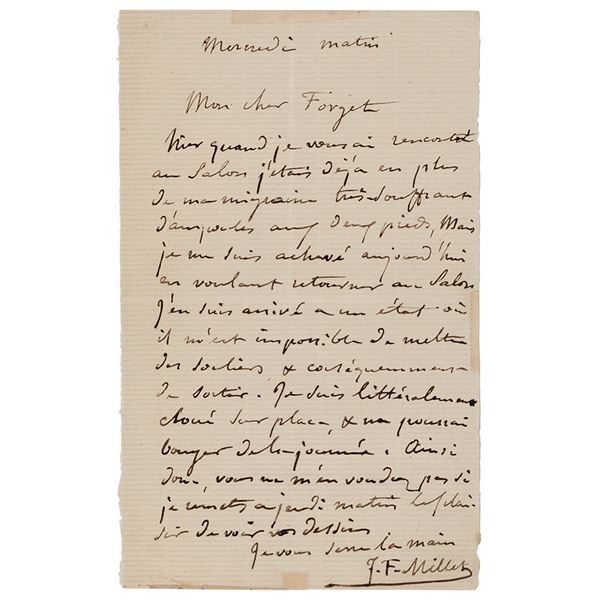 Mercredi matin
Mon cher Forget
Hier quand je vous ai rencontré
au Salon j'étais déjà en plus
de ma migraine très-souffrant
d'ampoules aux deux pieds, Mais
je me suis achevé aujourd'hui
en voulant retourner au Salon
J'en suis arrivé a un état où
il m'est impossible de mettre
des souliers & conséquemment
de sortir. Je suis littéralement
cloué sur place, & ne pourrai
bouger de la journée. Ainsi
donc, vous ne m'en voudrez pas si
je remets a jeudi matin le plai-
sir de voir vos dessins
Je vous serre la main
J.-F-Millet